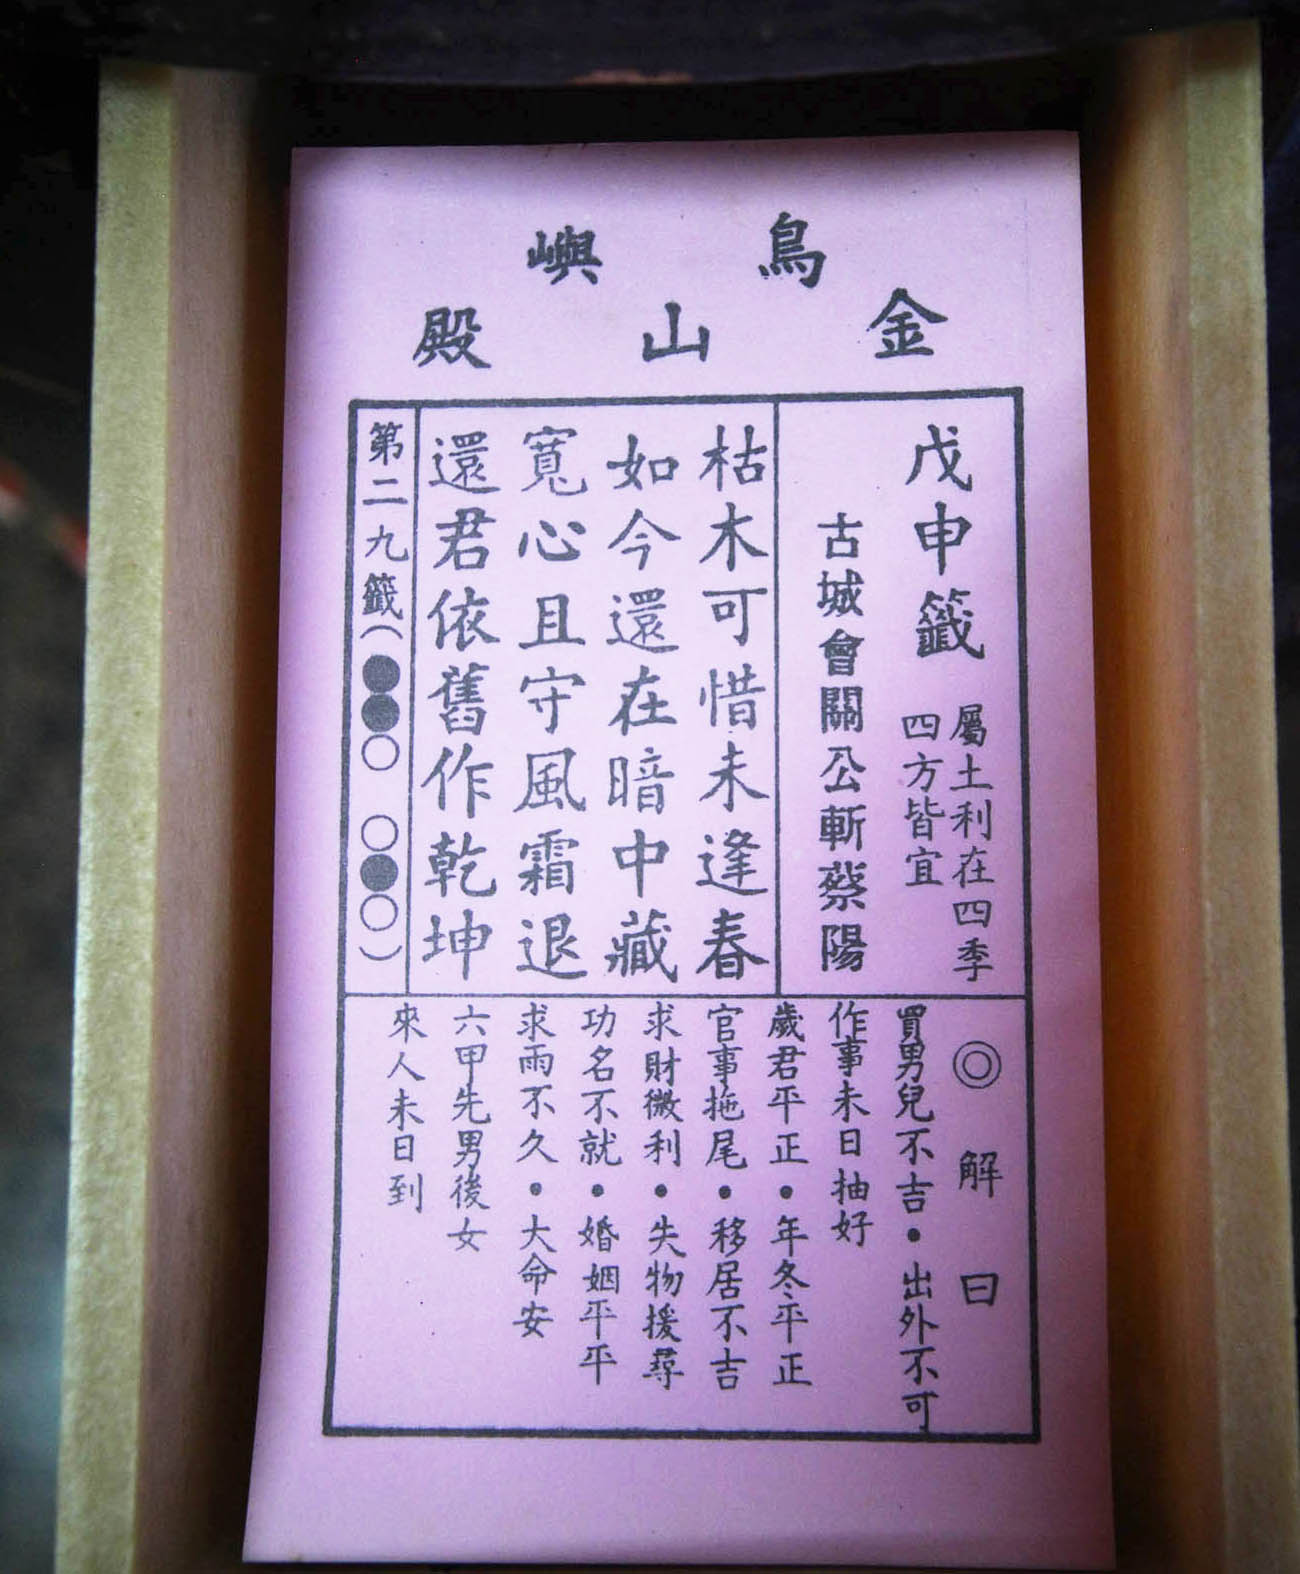 鳥嶼
金山殿
戊申籤
屬土利在四季
四方皆宜
古城會關公斬蔡陽
枯木可惜未逢春
如今還在暗中藏
寬心且守風霜退
還君依舊作乾坤
第二九籤(●●○ ○●○)
◎解曰
買男兒不吉•出外不可
作事未日抽好
歲君平正•年冬平正
官事拖尾•移居不吉
求財微利•失物援尋
功名不就•婚姻平平
求雨不久•大命安
六甲先男後女
來人未日到